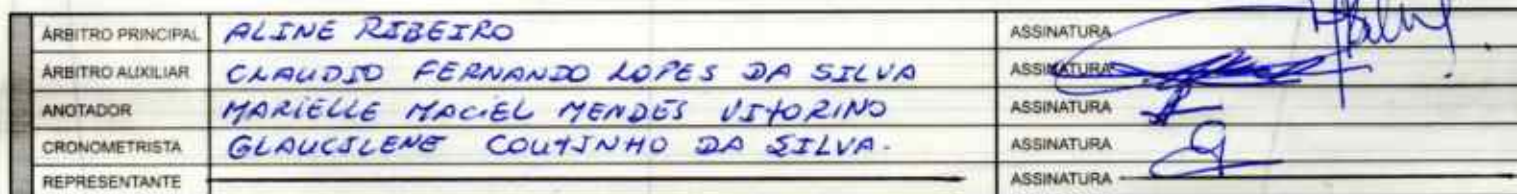 ÁRBITRO PRINCIPAL ALINE RIBEIRO ASSINATURA
ÁRBITRO AUXILIAR CLAUDIO FERNANDO LOPES DA SILVA ASSINATURA
ANOTADOR MARIELLE MACIEL MENDES VITORINO ASSINATURA
CRONOMETRISTA GLAUCILENE COUTINHO DA SILVA. ASSINATURA
REPRESENTANTE ASSINATURA